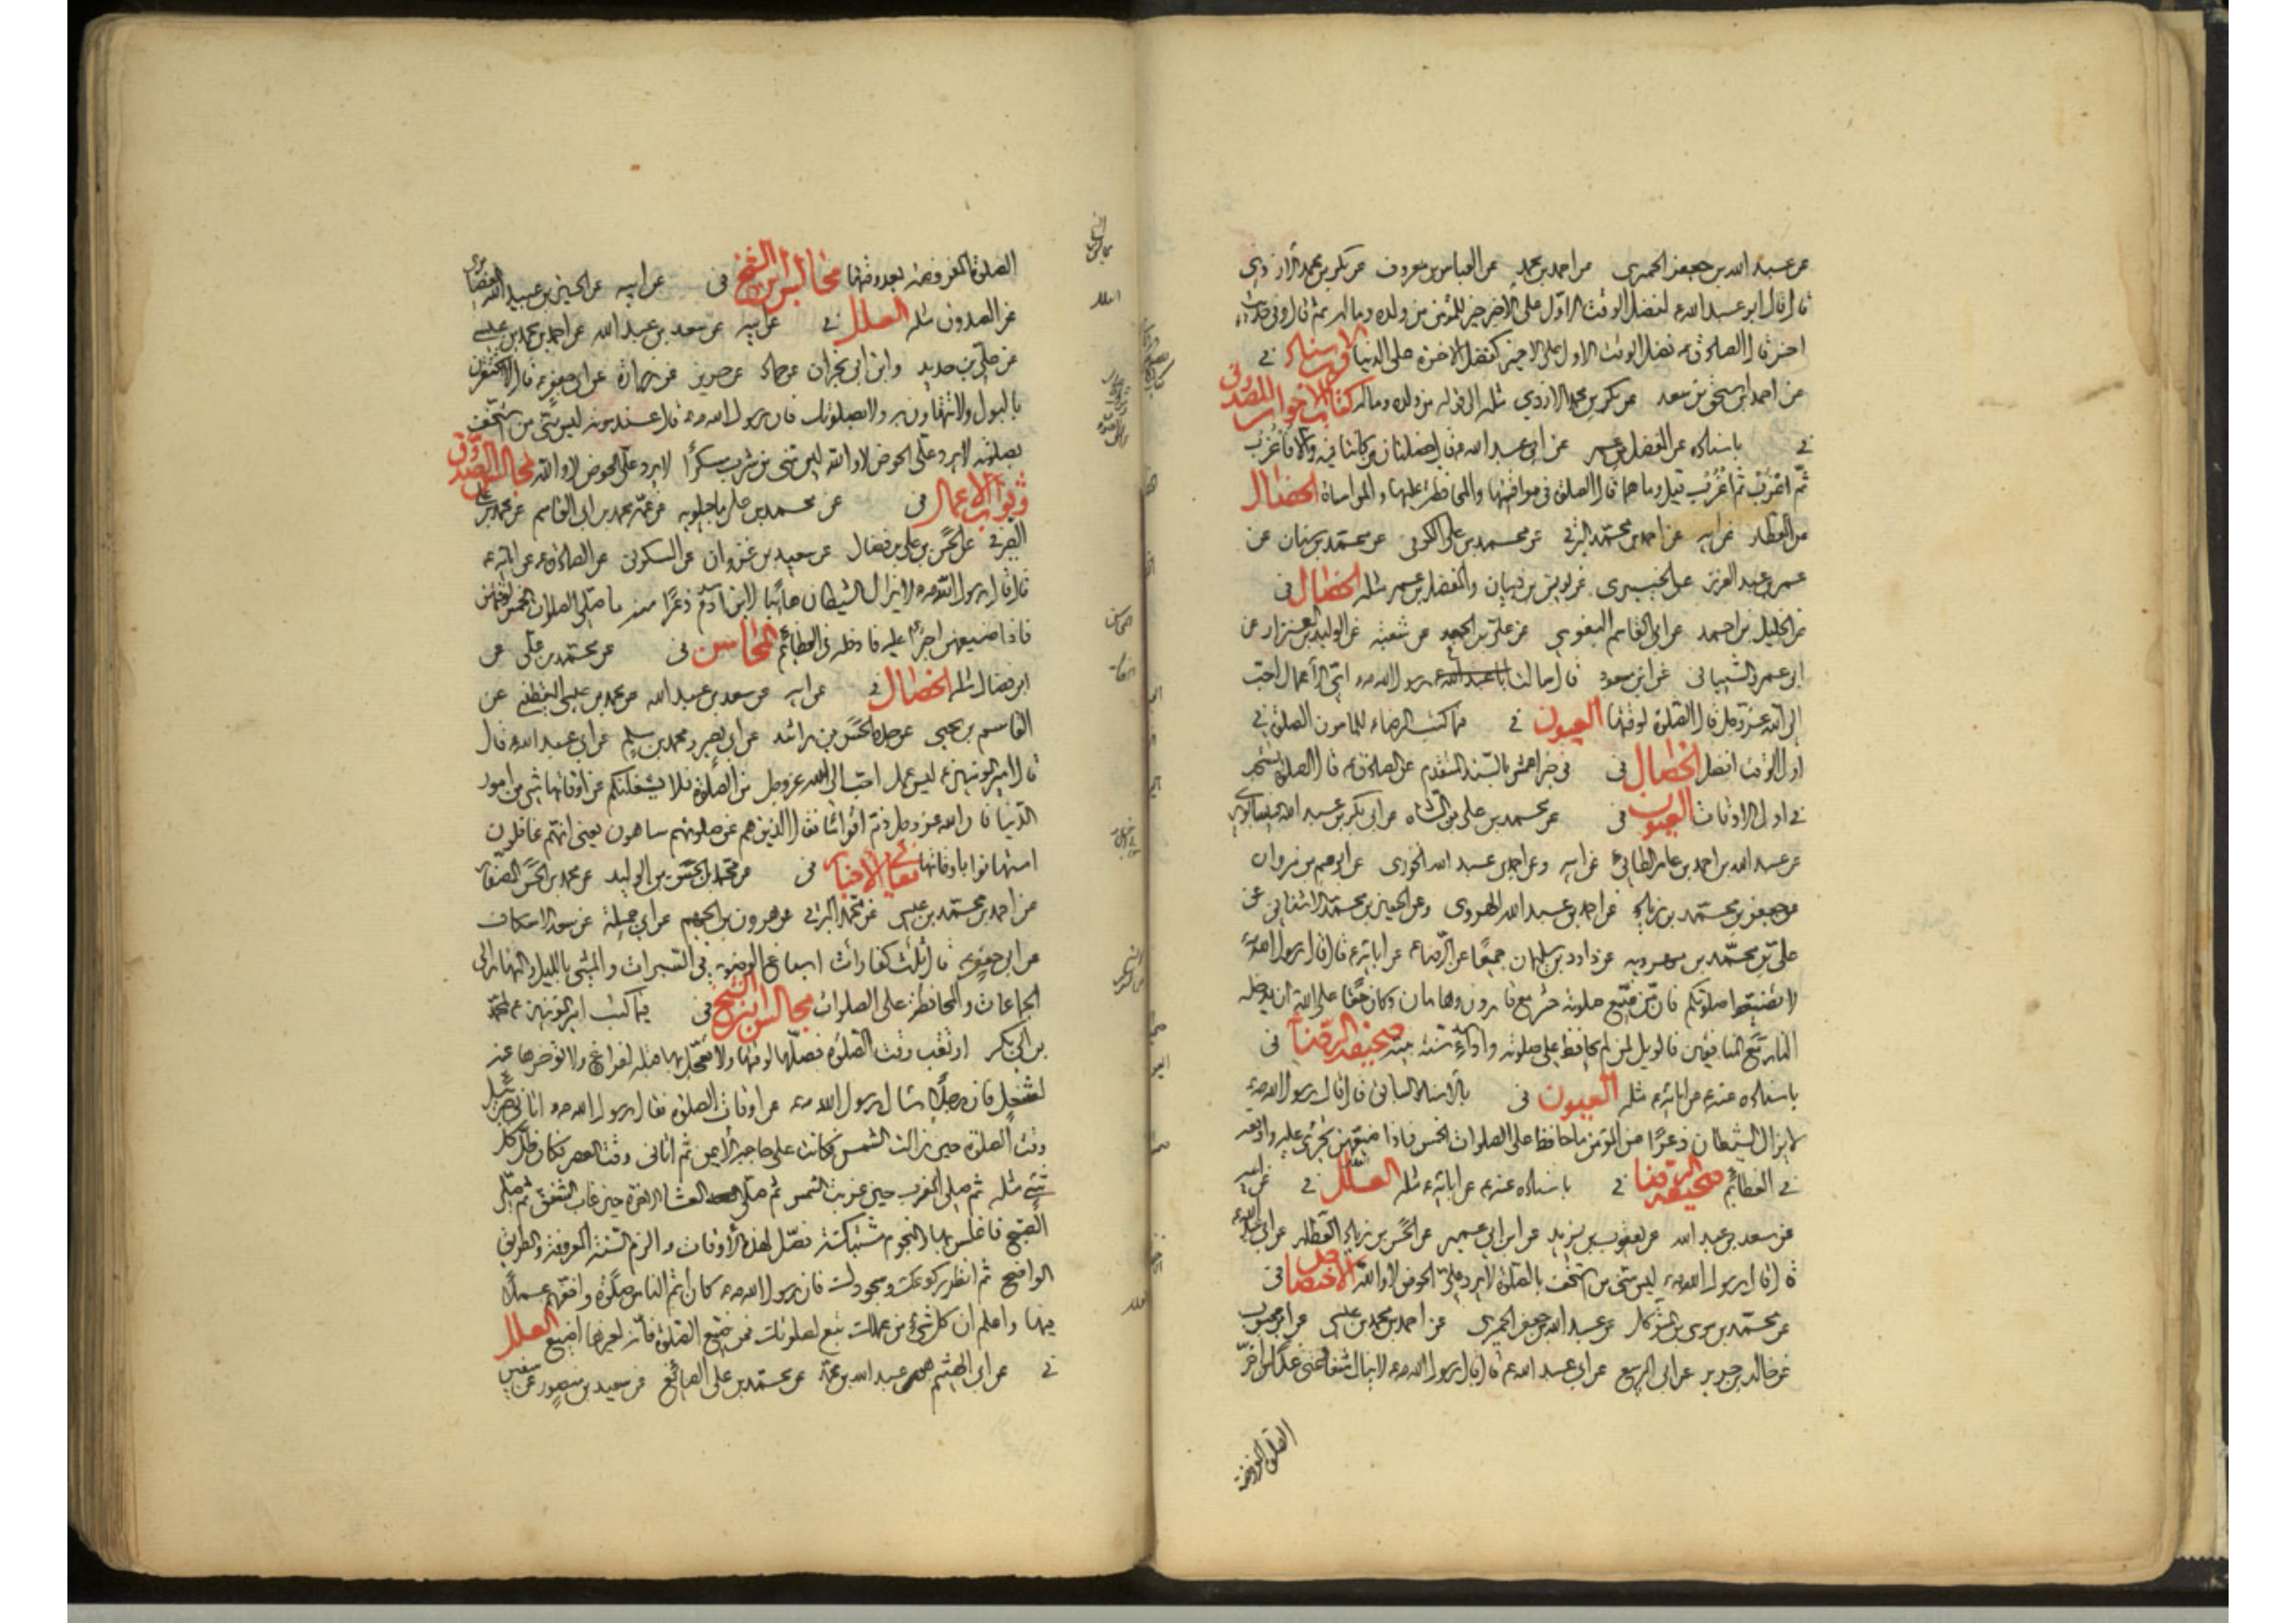 عن عبد الله بن جعفر الحميرى عن احمد بن محمد عن العباس بن معروف عن بكر بن محمد الازدى
قال قال ابو عبد الله ع لفضل الوقت الاول على الاخير خير للمؤمن من ولده وماله ثم قال وفى حديث
اخر قال الصادق ع فضل الوقت الاول على الاخير كفضل الاخرة على الدنيا قرب الاسناد فى
عن احمد بن اسحق بن سعد عن بكر بن محمد الازدي مثله الى قوله من ولده وماله كتاب الاخوان للصدوق
فى باسناده عن المفضل بن عمر عن ابى عبد الله ع قال خصلتان من كانتا فيه والا فاعزب
ثم اعزب ثم اعزب قيل وما هما قال الصلوة فى مواقيتها والمحافظة عليها والمواساة الخصال
عن العطار عن ابيه عن احمد بن محمد البرقى عن محمد بن على الكوفى عن محمد بن سنان عن
عمر بن عبد العزيز عن الخيبرى عن يونس بن ظبيان والمفضل بن عمر مثله الخصال فى
عن الخليل بن احمد عن ابى القاسم البغوي عن على بن الجعد عن شعبة عن الوليد بن العيزار عن
ابى عمرو الشيبانى عن ابن مسعود قال سالت رسول الله ص اى الاعمال احب
الى الله عز وجل قال الصلوة لوقتها العيون فى فيما كتب الرضا ع للمامون الصلوة فى
اول الوقت افضل الخصال فى فى خبر الاعمش بالسند المتقدم عن الصادق ع قال الصلوة تستحب
فى اول الاوقات العيون فى عن محمد بن على بن الشاه عن ابى بكر بن عبد الله النيسابورى
عن عبد الله بن احمد بن عامر الطائى عن ابيه وعن احمد بن عبد الله الخوزى عن ابرهيم بن مروان
عن جعفر بن محمد بن زياد عن احمد بن عبد الله الهروى وعن الحسين بن محمد الاشنانى عن
على بن محمد بن مهرويه عن داود بن سليمان جميعا عن الرضا ع عن ابائه ع قال قال رسول الله ص
لا تضيعوا صلوتكم فان من ضيع صلوته حشر مع قارون وهامان وكان حقا على الله ان يدخله
النار مع المنافقين فالويل لمن لم يحافظ على صلوته واداء سنة نبيه صحيفة الرضا فى
باسناده عنه ع عن ابائه ع مثله العيون فى بالاسناد السابق قال قال رسول الله ص
لا يزال الشيطان ذعرا من المؤمن ما حافظ على الصلوات الخمس فاذا ضيعهن تجرى عليه واوقعه
فى العظائم صحيفة الرضا فى باسناده عنه ع عن ابائه ع مثله العلل فى عن ابيه
عن سعد بن عبد الله عن يعقوب بن يزيد عن ابن ابى عمير عن الحسن بن زياد العطار عن ابى عبد الله ع
قال قال رسول الله ص ليس منى من استخف بالصلوة لا يرد على الحوض لا والله الاختصاص فى
عن محمد بن موسى بن المتوكل عن عبد الله بن جعفر الحميرى عن احمد بن محمد بن عيسى عن ابن محبوب
عن خالد بن جرير عن ابى الربيع عن ابى عبد الله ع قال قال رسول الله ص لا ينال شفاعتى غدا من اخر
الصلوة المفروضة
الصلوة المفروضة بعد وقتها مجالس ابن الشيخ فى عن ابيه عن الحسين بن عبيد الله الغضايرى
عن الصدوق مثله العلل فى عن ابيه عن سعد بن عبد الله عن احمد بن محمد بن عيسى
عن على بن حديد وابن ابى نجران عن حماد عن حريز عن زرارة عن ابى جعفر ع قال لا تحتقرن
بالبول ولا تتهاون به ولا بصلوتك فان رسول الله ص قال عند موته ليس منى من استخف
بصلوته لا يرد على الحوض لا والله ليس منى من شرب مسكرا لا يرد على الحوض لا والله مجالس الصدوق
وثواب الاعمال فى عن محمد بن على ماجيلويه عن عمه محمد بن ابى القاسم عن محمد بن على
القرشى عن الحسن بن على بن فضال عن سعيد بن غزوان عن السكونى عن الصادق ع عن ابائه ع
قال قال رسول الله ص لا يزال الشيطان هائبا لابن ادم ذعرا منه ما صلى الصلوات الخمس لوقتهن
فاذا ضيعهن اجترأ عليه فادخله فى العظائم المحاسن فى عن محمد بن على عن
ابن فضال مثله الخصال فى عن ابيه عن سعد بن عبد الله عن محمد بن عيسى اليقطينى عن
القاسم بن يحيى عن جده الحسن بن راشد عن ابى بصير ومحمد بن مسلم عن ابى عبد الله ع قال
قال امير المؤمنين ع ليس عمل احب الى الله عز وجل من الصلوة فلا يشغلنكم عن اوقاتها شئ من امور
الدنيا فان الله عز وجل ذم اقواما فقال الذين هم عن صلوتهم ساهون يعنى انهم غافلون
استهانوا باوقاتها معانى الاخبار فى عن محمد بن الحسن بن الوليد عن محمد بن الحسن الصفار
عن احمد بن محمد بن عيسى عن محمد البرقى عن هرون بن الجهم عن ابى جميلة عن سعد الاسكاف
عن ابى جعفر ع قال ثلث كفارات اسباغ الوضوء فى السبرات والمشى بالليل والنهار الى
الجماعات والمحافظة على الصلوات مجالس ابن الشيخ فى فيما كتب امير المؤمنين ع لمحمد
بن ابى بكر ارتقب وقت الصلوة فصلها لوقتها ولا تعجل بها قبله لفراغ ولا تؤخرها عنه
لشغل فان رجلا سال رسول الله ص عن اوقات الصلوة فقال رسول الله ص اتانى جبرئيل
وقت الصلوة حين زالت الشمس فكانت على حاجبه الايمن ثم اتانى وقت العصر فكان ظل كل
شئ مثله ثم صلى المغرب حين غربت الشمس ثم صلى العشاء الاخرة حين غاب الشفق ثم صلى
الصبح فاغلس بها والنجوم مشتبكة فصل لهذه الاوقات والزم السنة المعروفة والطريق
الواضح ثم انظر ركوعك وسجودك فان رسول الله ص كان اتم الناس صلوة واخفهم عملا
فيها واعلم ان كل شئ من عملك تبع لصلوتك فمن ضيع الصلوة فانه لغيرها اضيع العلل
فى عن ابى الهيثم عبد الله بن محمد عن محمد بن على الصائغ عن سعيد بن منصور عن سفين